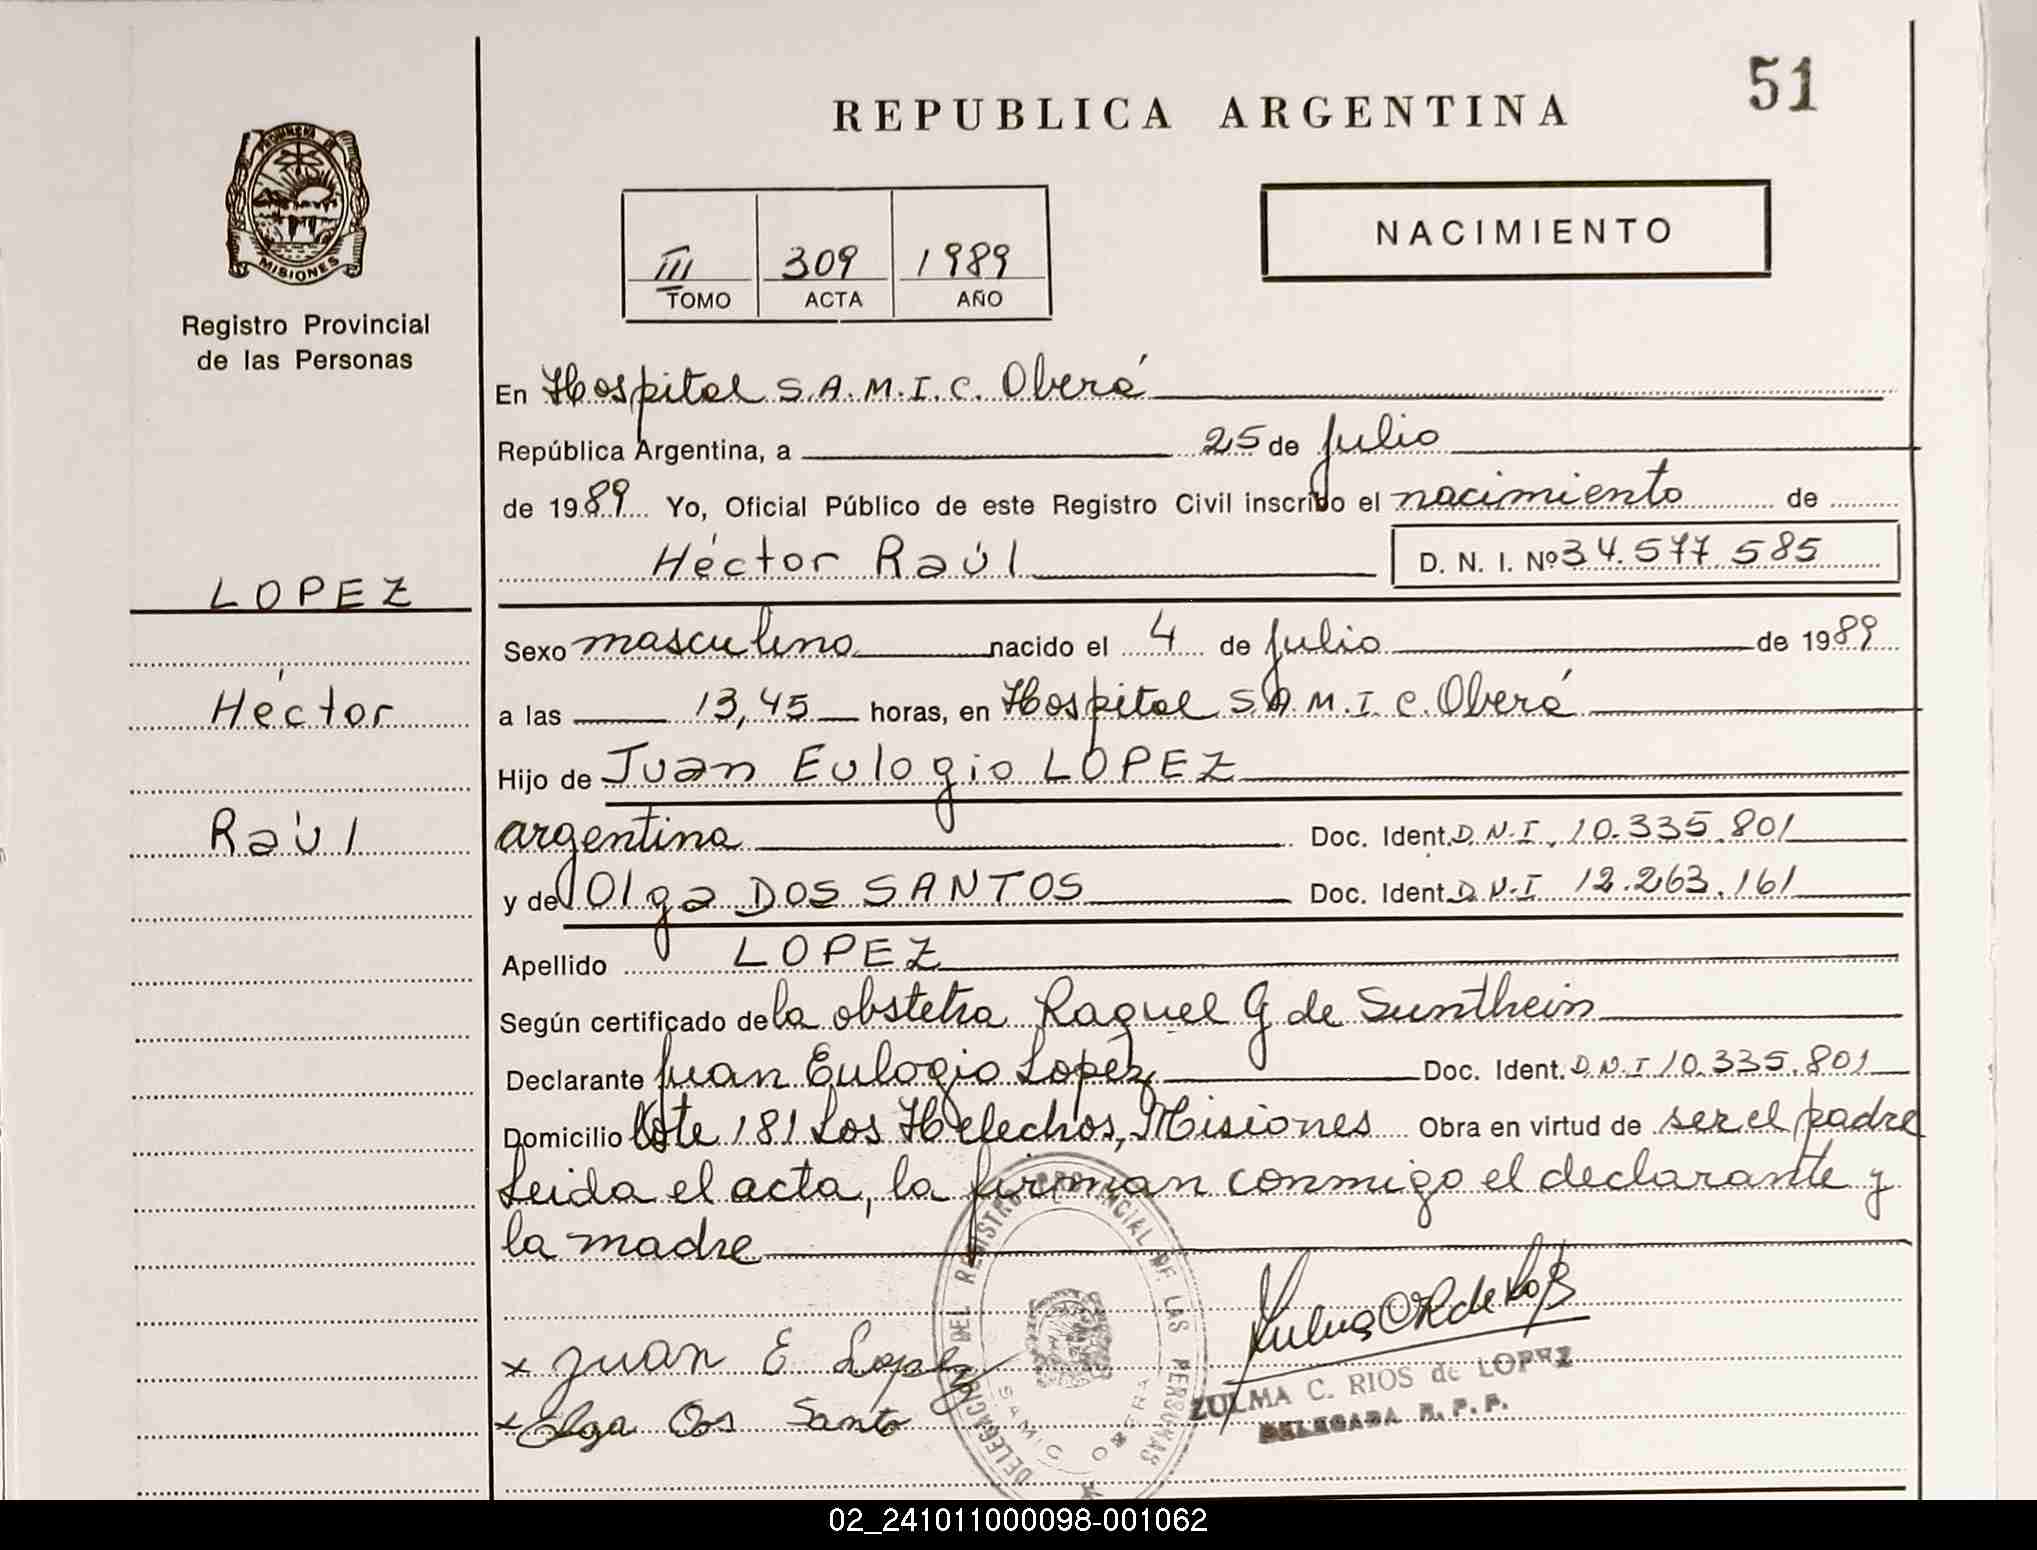 51
REPUBLICA ARGENTINA
NACIMIENTO
PROVINCIA DE
MISIONES
Registro Provincial
de las Personas
III 309 1989
TOMO ACTA AÑO
En Hospital S.A.M.I.C. Oberá
República Argentina, a 25 de julio
de 1989 Yo, Oficial Público de este Registro Civil inscribo el nacimiento de
Héctor Raúl D. N. I. Nº 34.577.585
LOPEZ
Héctor
Raúl
Sexo masculino nacido el 4 de julio de 1989
a las 13,45 horas, en Hospital S.A.M.I.C. Oberá
Hijo de Juan Eulogio LOPEZ
argentina Doc. Ident. D.N.I. 10.335.801
y de Olga DOS SANTOS Doc. Ident. D.N.I 12.263.161
Apellido LOPEZ
Según certificado de la obstetra Raquel G de Sunthein
Declarante Juan Eulogio Lopez Doc. Ident. D.N.I 10.335.801
Domicilio Lote 181 Los Helechos, Misiones Obra en virtud de ser el padre
Leida el acta, la firman conmigo el declarante y
la madre
x Juan E Lopez
x Olga Dos Santo
DELEGACION DEL REGISTRO PROVINCIAL DE LAS PERSONAS
SAMIC OBERA
ZULMA C. RIOS de LOPEZ
DELEGADA R. P. P.
02_241011000098-001062